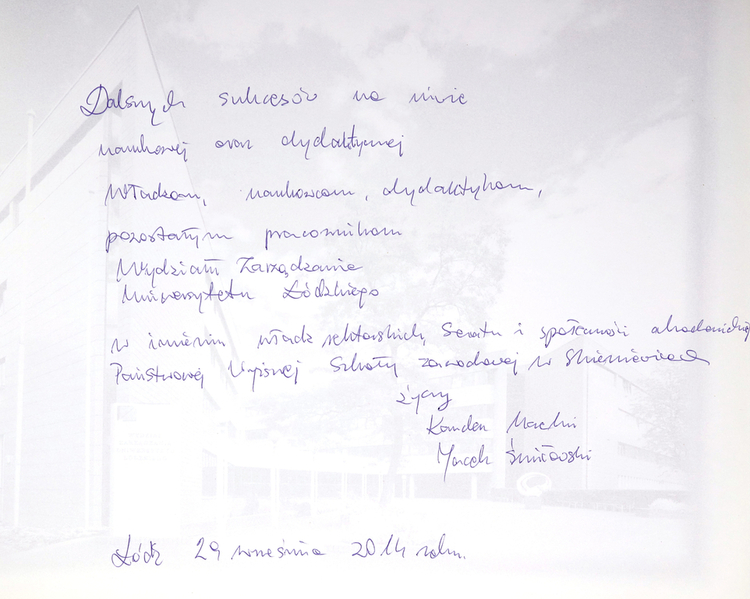 Dalszych sukcesów na niwie
naukowej oraz dydaktycznej
Władzom, naukowcom, dydaktykom,
pozostałym pracownikom
Wydziału Zarządzania
Uniwersytetu Łódzkiego
w imieniu władz rektorskich, Senatu i społeczności akademickiej
Państwowej Wyższej Szkoły Zawodowej w Skierniewicach
życzy
Marek
Łódź 29 września 2014 roku.